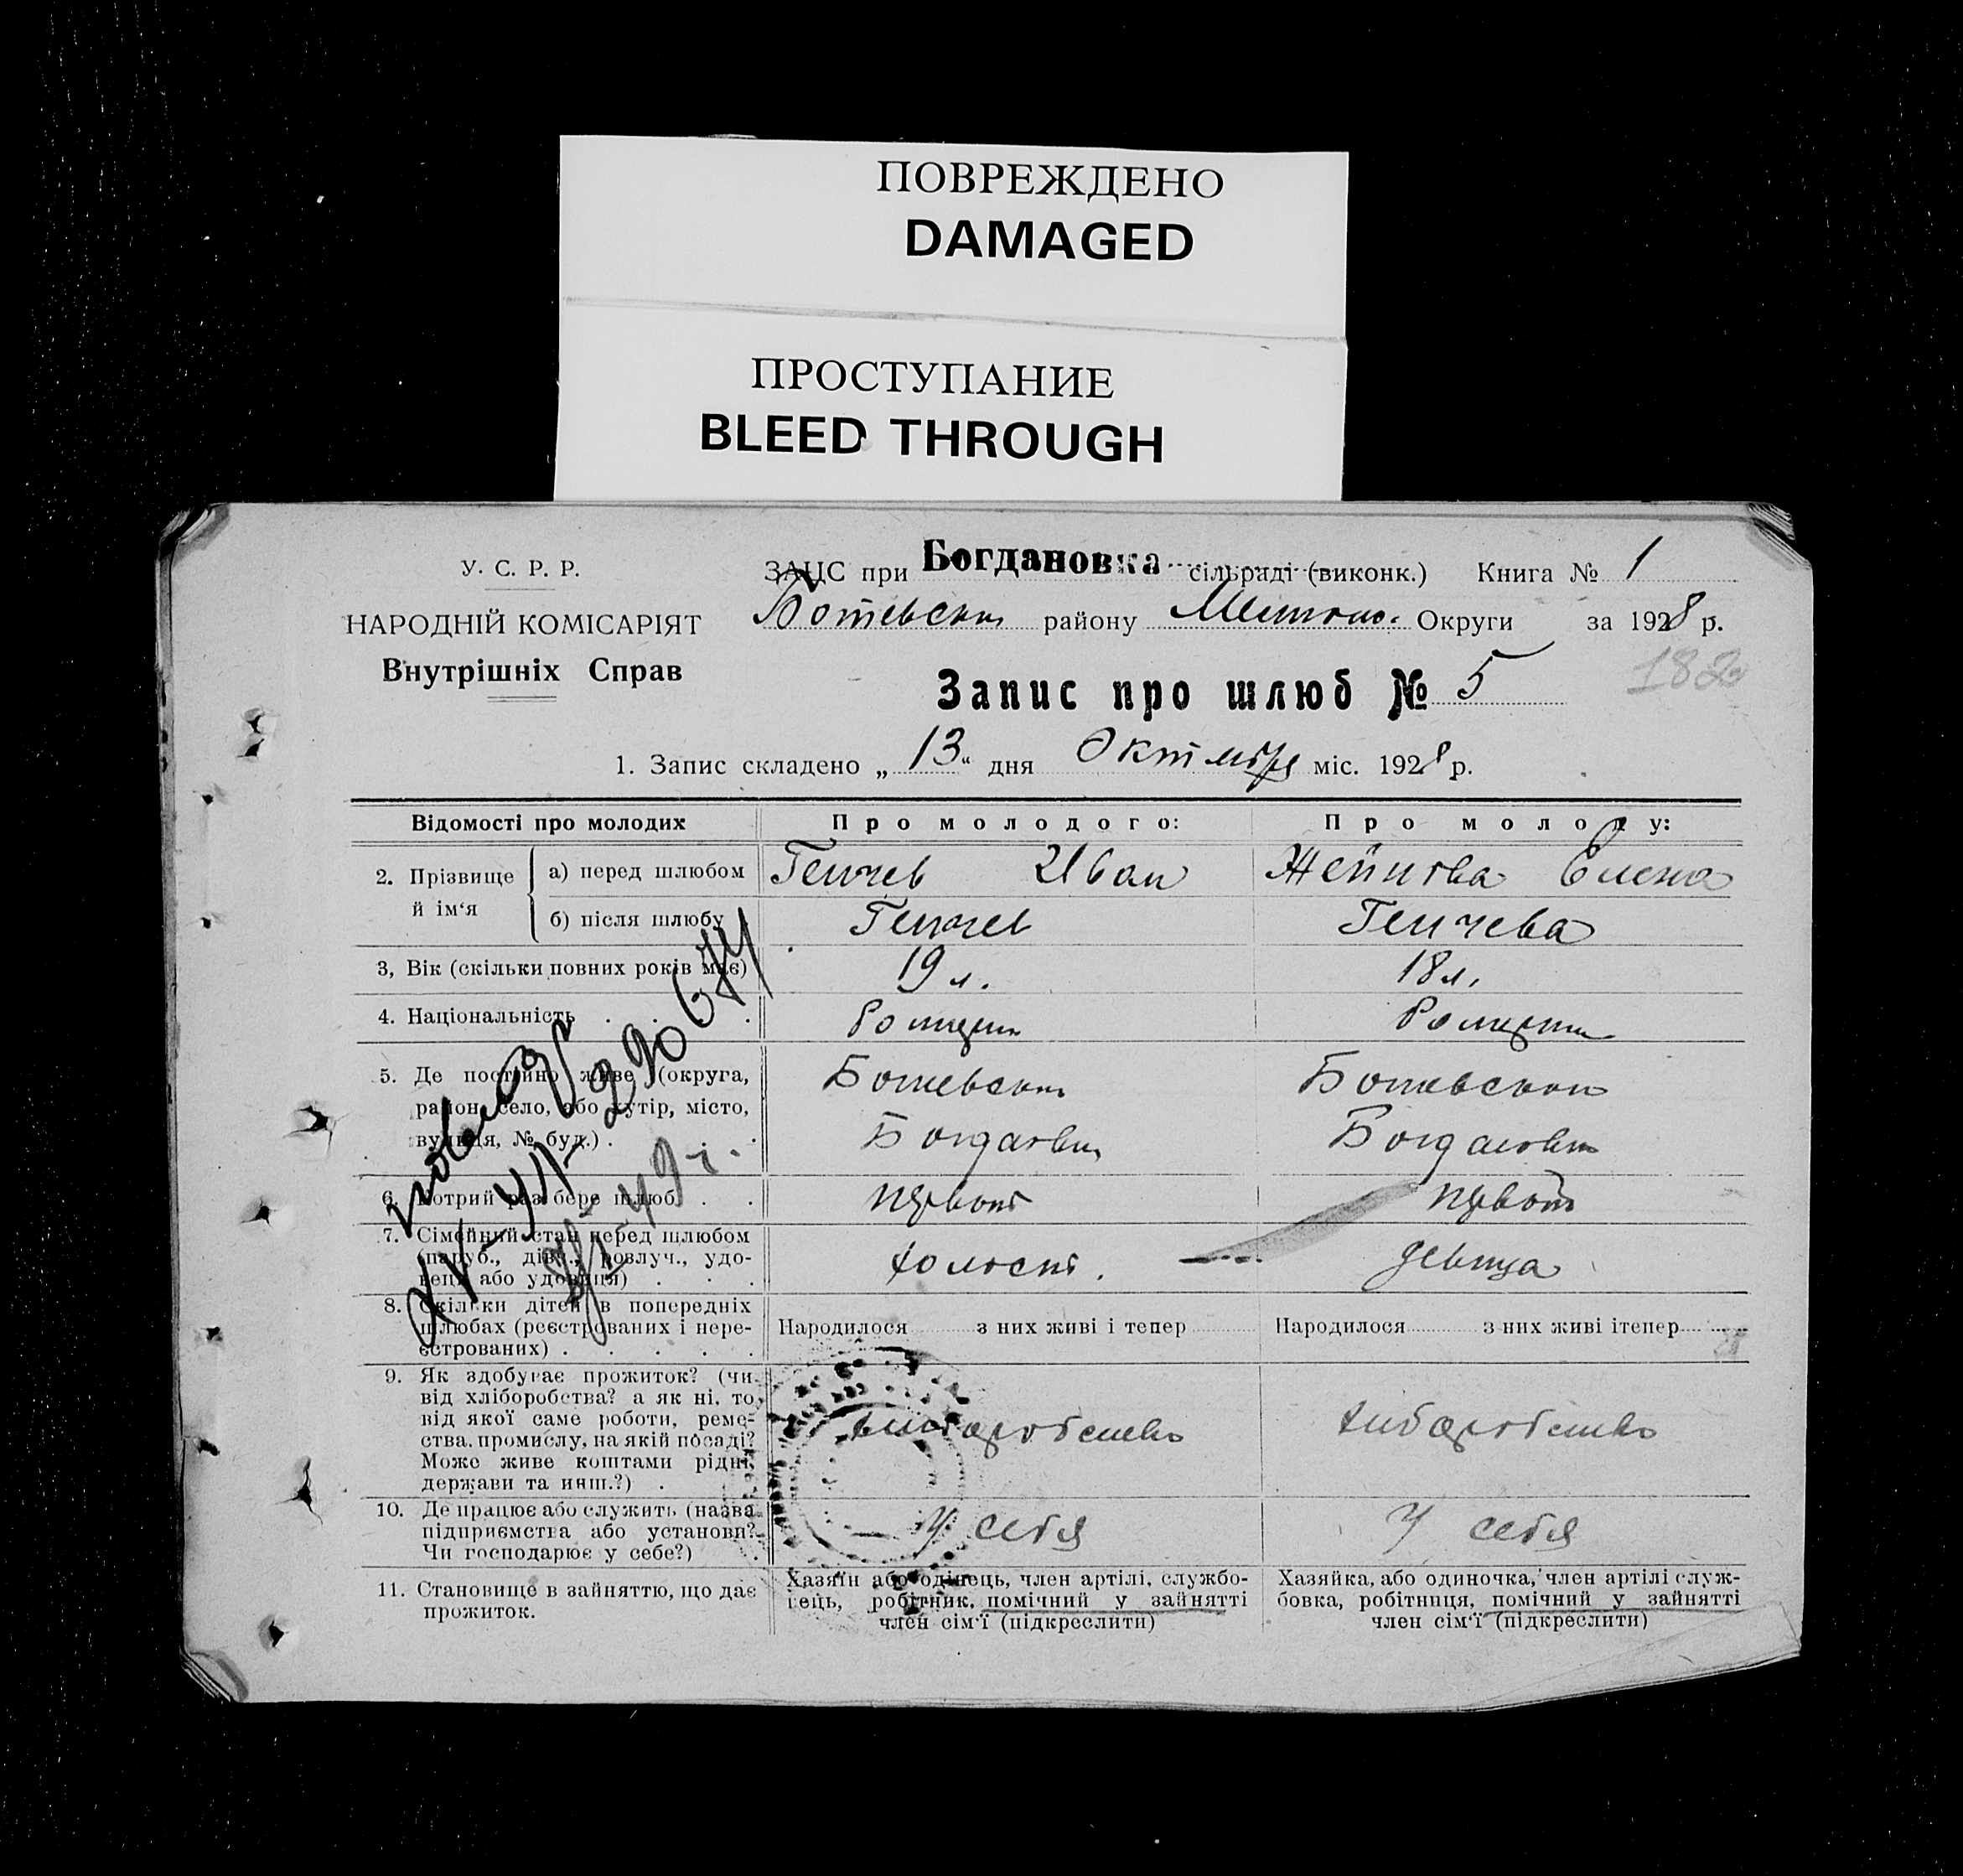 ПОВРЕЖДЕНО
DAMAGED
ПРОСТУПАНИЕ
BLEED THROUGH
У. С. Р. Р.
НАРОДНІЙ КОМІСАРІЯТ
Внутрішніх Справ
ЗАЦС при Богдановка сільраді (виконк.) Книга № 1
району Округи за 1928 р.
182
Запис про шлюб № 5
1. Запис складено „ 13 “ дня Октября міс. 1928 р.
Відомості про молодих
Про молодого:
Про молоду:
2. Прізвище й ім‘я
а) перед шлюбом
Генчев Иван
Елена
б) після шлюбу
Генчев
Генчева
3, Вік (скільки повних років має)
19 л.
18 л.
4. Національність
5. Де постійно живе (округа,
район, село, або хутір, місто,
вулиця, № буд.)
6. Котрий раз бере шлюб
первый
первый
7. Сімейний стан перед шлюбом
(паруб., дівч., розлуч., удо-
вець або удовиця)
холост.
девица
8. Скільки дітей в попередніх
шлюбах (реєстрованих і нере-
єстрованих)
Народилося з них живі і тепер
Народилося з них живі ітепер
9. Як здобуває прожиток? (чи
від хліборобства? а як ні, то,
від якої саме роботи, реме-
ства, промислу, на якій посаді?
Може живе коштами рідні,
держави та инш.?)
10. Де працює або служить (назва
підприємства або установи?
Чи господарює у себе?)
У себя
У себя
11. Становище в зайняттю, що дає
прожиток.
Хазяїн або одінець, член артілі, службо-
вець, робітник, помічний у зайнятті
член сім‘ї (підкреслити)
Хазяйка, або одиночка, член артілі служ-
бовка, робітниця, помічний у зайнятті
член сім‘ї (підкреслити)